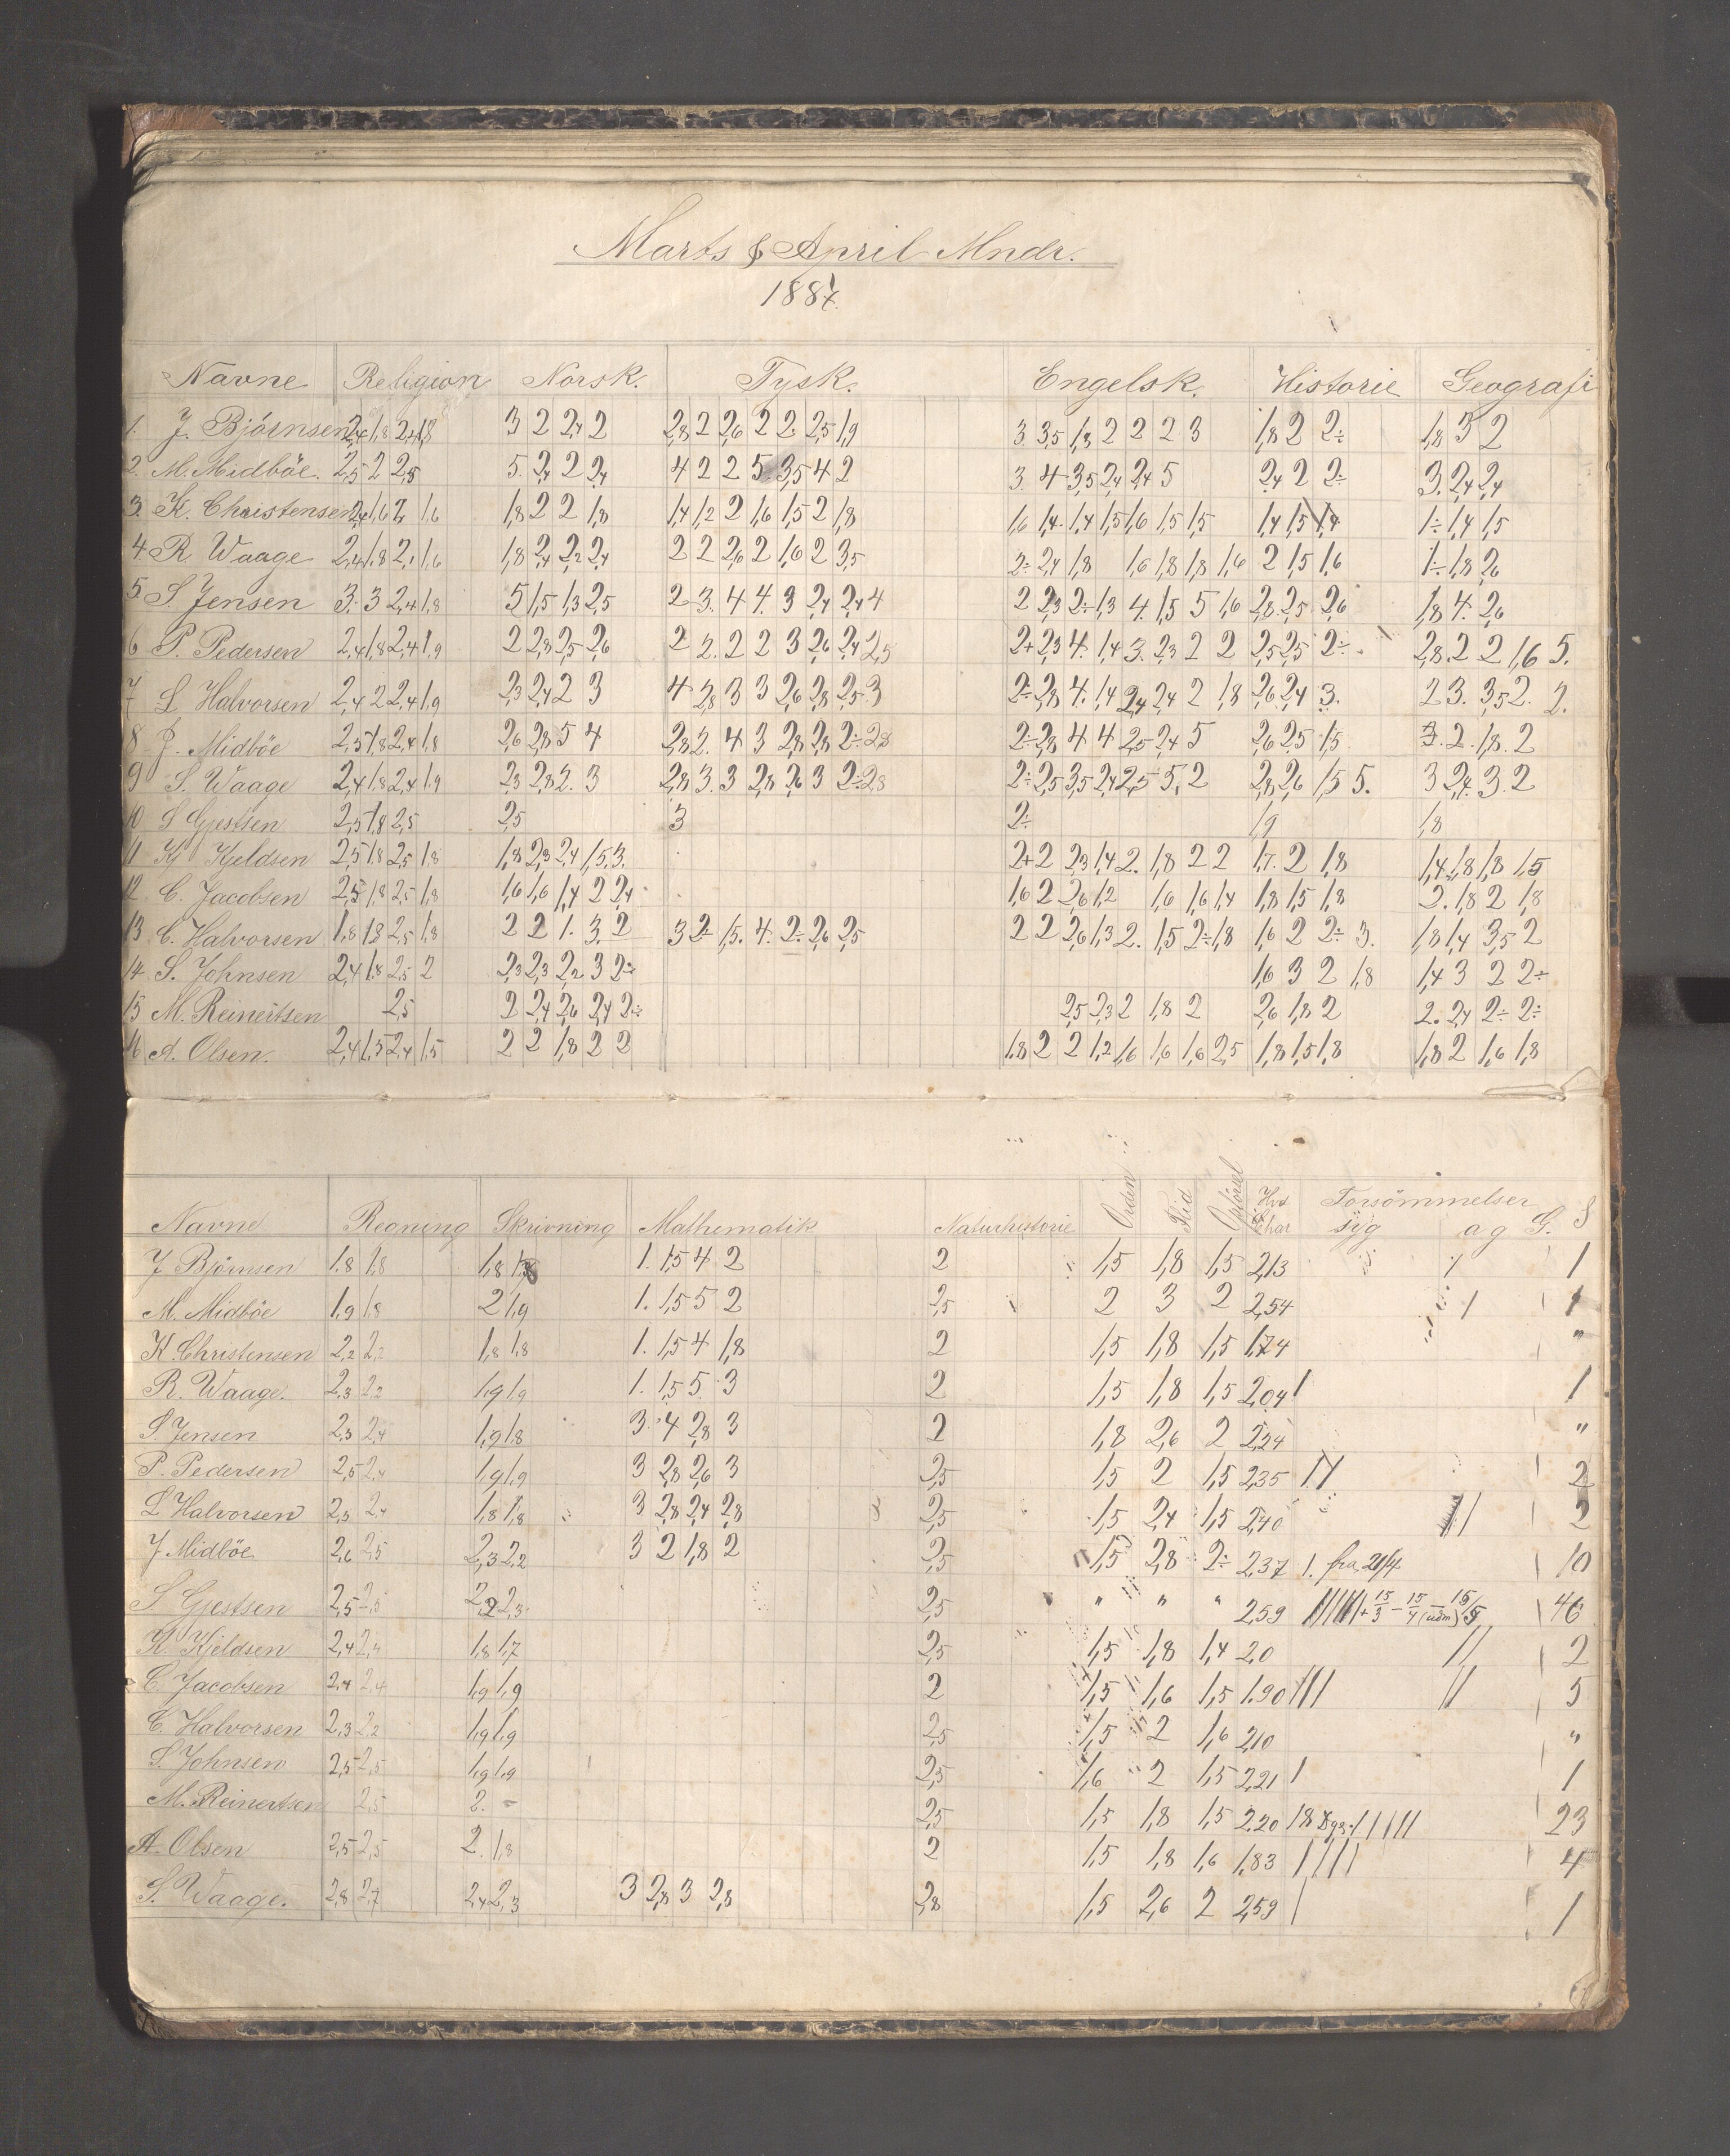 Marts & April Mndr.
1887.
Navne Religion Norsk. Tysk. Engelsk. Historie Geografi
1. J. Björnsen 2,4 1,8 2,4 1,8 3 2 2,4 2 2,8 2 2,6 2 2 2,5 1,9 3. 3,5 1,8 2 2 2 3 1,8 2 2÷ 1,8 3 2
2. M. Midböe. 2,5 2 2,5 5. 2,4 2 2,4 4 2 2 5 3,5 4 2 3. 4 3,5 2,4 2,4 5 2,4 2 2÷ 3. 2,4 2,4
3. K. Christensen 2,4 1,6 2, 1,6 1,8 2 2 1,8 1,4 1,2 2 1,6 1,5 2 1,8 1,6 1,4 1,4 1,5 1,6 1,5 1,5 1,4 1,5 1,4 1÷ 1,4 1,5
4 R. Waage 2,4 1,8 2,1 1,6 1,8 2,4 2,2 2,4 2 2 2,6 2 1,6 2 3,5 2÷ 2,4 1,8 1,6 1,8 1,8 1,6 2 1,5 1,6 1÷ 1,8 2,6
5 S. Jensen 3. 3 2,4 1,8 5 1,5 1,3 2,5 2 3. 4 4. 3 2,4 2,4 4 2 2,3 2÷ 1,3 4. 1,5 5 1,6 2,8 2,5 2,6 1,8 4. 2,6
6 P. Pedersen 2,4 1,8 2,4 1,9 2 2,8 2,5 2,6 2 2. 2 2 3 2,6 2,4 2,5 2+ 2,3 4. 1,4 3. 2,3 2 2 2,5 2,5 2÷ 2,8. 2 2 1,6 5.
7 L Halvorsen 2,4 2 2,4 1,9 2,3 2,4 2 3 4 2,8 3 3 2,6 2,8 2,5 3 2÷ 2,8 4. 1,4 2,4 2,4 2 1,8 2,6 2,4 3. 2 3. 3,5 2. 2.
8 J. Midböe 2,5 1,8 2,4 1,8 2,6 2,8 5 4 2,8 2. 4 3 2,8 2,8 2÷ 2,8 2÷ 2,8 4 4 2,5 2,4 5 2,6 2,5 1,5 3. 2. 1,8. 2
9 S. Waage 2,4 1,8 2,4 1,9 2,3 2,8 2. 3 2,8 3. 3 2,8 2,6 3 2÷ 2,8 2÷ 2,5 3,5 2,4 2,5 5, 2 2,8 2,6 1,5 5. 3 2,4. 3. 2
10 S Gjestsen 2,5 1,8 2,5 2,5 3 2÷ 1,9 1,8
11 K. Kjeldsen 2,5 1,8 2,5 1,8 1,8 2,3 2,4 1,5 3. 2+ 2 2,3 1,4 2. 1,8 2 2 1,7. 2 1,8 1,4 1,8 1,8 1,5
12. C. Jacobsen 2,5 1,8 2,5 1,8 1,6 1,6 1,4 2 2,4 1,6 2 2,6 1,2 1,6 1,6 1,4 1,8 1,5 1,8 2. 1,8 2 1,8
13 C. Halvorsen 1,8 1,8 2,5 1,8 2 2 1. 3. 2 3 2÷ 1,5. 4. 2÷ 2,6 2,5 2 2 2,6 1,3 2. 1,5 2÷ 1,8 1,6 2 2÷ 3. 1,8 1,4 3,5 2
14. S. Johnsen 2,4 1,8 2,5 2 2,3 2,3 2,2 3 2÷ 1,6 3 2 1,8 1,4 3 2 2÷
15 M. Reinertsen 2,5 2 2,4 2,6 2,4 2÷ 2,5 2,3 2 1,8 2 2,6 1,8 2 2. 2,4 2÷ 2÷
16 A. Olsen. 2,4 1,5 2,4 1,5 2 2 1,8 2 2 1,8 2 2 1,2 1,6 1,6 1,6 2,5 1,8 1,5 1,8 1,8 2 1,6 1,8
Navne Regning Skrivning Mathematik Naturhistorie Orden Flid Opförsel Hvd Char Forsömmelser
syg a g G. S
J Björnsen 1,8 1,8 1,8 1,8 1. 1,5 4 2 2 1,5 1,8 1,5 2,13 1 1
M. Midböe 1,9 1,8 2 1,9 1. 1,5 5 2 2,5 2 3 2 2,54 1 1
K. Christensen 2,2 2,2 1,8 1,8 1. 1,5 4 1,8 2 1,5 1,8 1,5 1,74 "
R. Waage. 2,3 2,2 1,9 1,9 1. 1,5 5. 3 2 1,5 1,8 1,5 2,04 1 1
S. Jensen 2,3 2,4 1,9 1,8 3. 4 2,8 3 2 1,8 2,6 2 2,24 "
P. Pedersen 2,5 2,4 1,9 1,9 3 2,8 2,6 3 2,5 1,5 2 1,5 2,35 11 2
L Halvorsen 2,3 2,4 1,8 1,8 3 2,8 2,4 2,8 2,5 1,5 2,4 1,5 2,40 2
J Midböe 2,6 2,5 2,3 2,2 3 2 1,8 2 2,5 1,5 2,8 2÷ 2,37 1. fra 20/4. 10
S Gjestsen 2,5 2,5 2,2 2,3 2,5 " " " 2,59 + 15/3 – 15/4 (udm) 46
K. Kjeldsen 2,4 2,4 1,8 1,7 2,5 1,5 1,8 1,4 2,0 11 2
C. Jacobsen 2,4 2,4 1,9 1,9 2 1,5 1,6 1,5 1.90 111 11 5
C. Halvorsen 2,3 2,2 1,9 1,9 2,5 1,5 2 1,6 2,10 "
S. Johnsen 2,5 2,5 1,9 1,9 2,5 1,6 2 1,5 2,21 1 1
M. Reinertsen 2,5 2. – 2,5 1,5 1,8 1,5 2.20 18 Dge. 11111 23
A. Olsen 2,5 2,5 2. 1,8 2 1,5 1,8 1,6 1,83 1111 4
S. Waage. 2,8 2,7 2,4 2,3 3 2,8 3 2,8 2,8 1,5 2,6 2 2,59 1 1